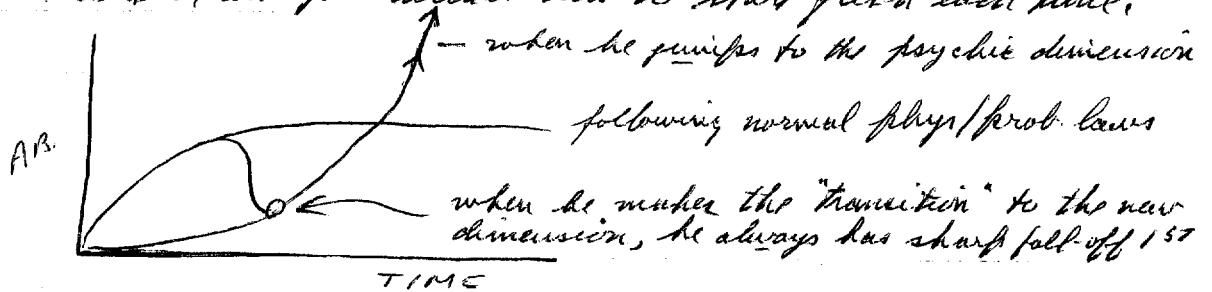 start fresh each time.
— when he jumps to the psychic dimension
following normal phys/prob. laws
AB.
when he makes the "transition" to the new
dimension, he always has sharp fall-off 1ST
TIME